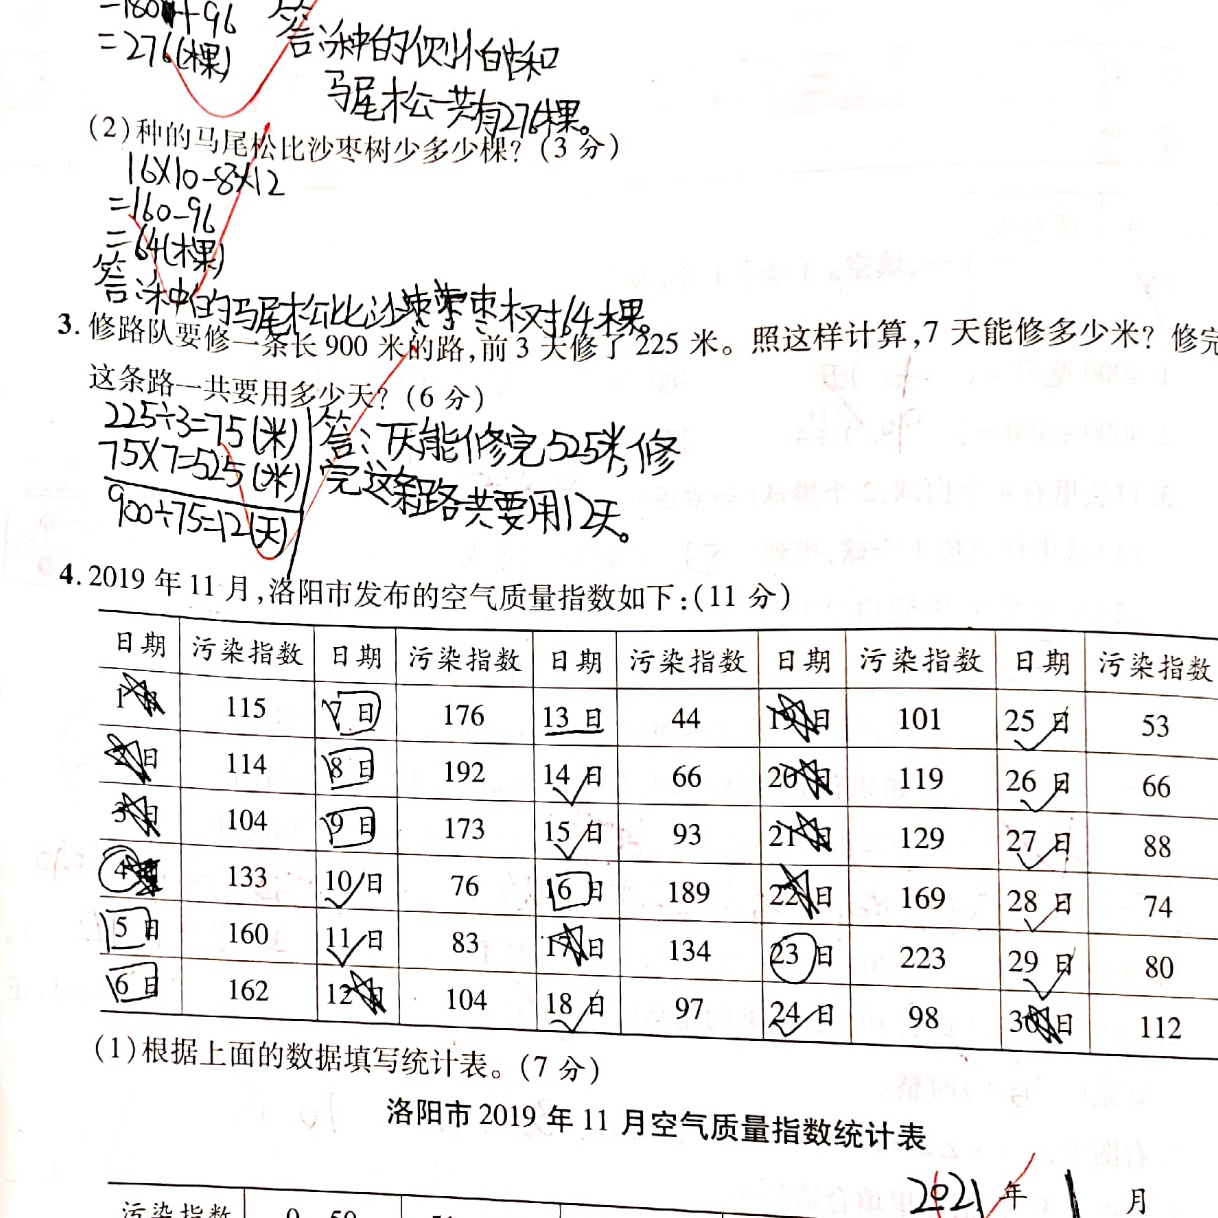 =180+96
=276(棵)
答:种的侧柏和
马尾松一共有276棵。
(2)种的马尾松比沙枣树少多少棵?(3分)
16×10-8×12
=160-96
=64(棵)
答:种的马尾松比沙枣树少64棵。
3.修路队要修一条长900米的路,前3天修了225米。照这样计算,7天能修多少米?修完
这条路一共要用多少天?(6分)
225÷3=75(米)
75×7=525(米)
900÷75=12(天)
答:7天能修完525米,修
完这条路共要用12天。
4.2019年11月,洛阳市发布的空气质量指数如下:(11分)
日期 污染指数 日期 污染指数 日期 污染指数 日期 污染指数 日期 污染指数
1日 115 7日 176 13日 44 19日 101 25日 53
2日 114 8日 192 14日 66 20日 119 26日 66
3日 104 9日 173 15日 93 21日 129 27日 88
4日 133 10日 76 16日 189 22日 169 28日 74
5日 160 11日 83 17日 134 23日 223 29日 80
6日 162 12日 104 18日 97 24日 98 30日 112
(1)根据上面的数据填写统计表。(7分)
洛阳市2019年11月空气质量指数统计表
2021年1月
污染指数